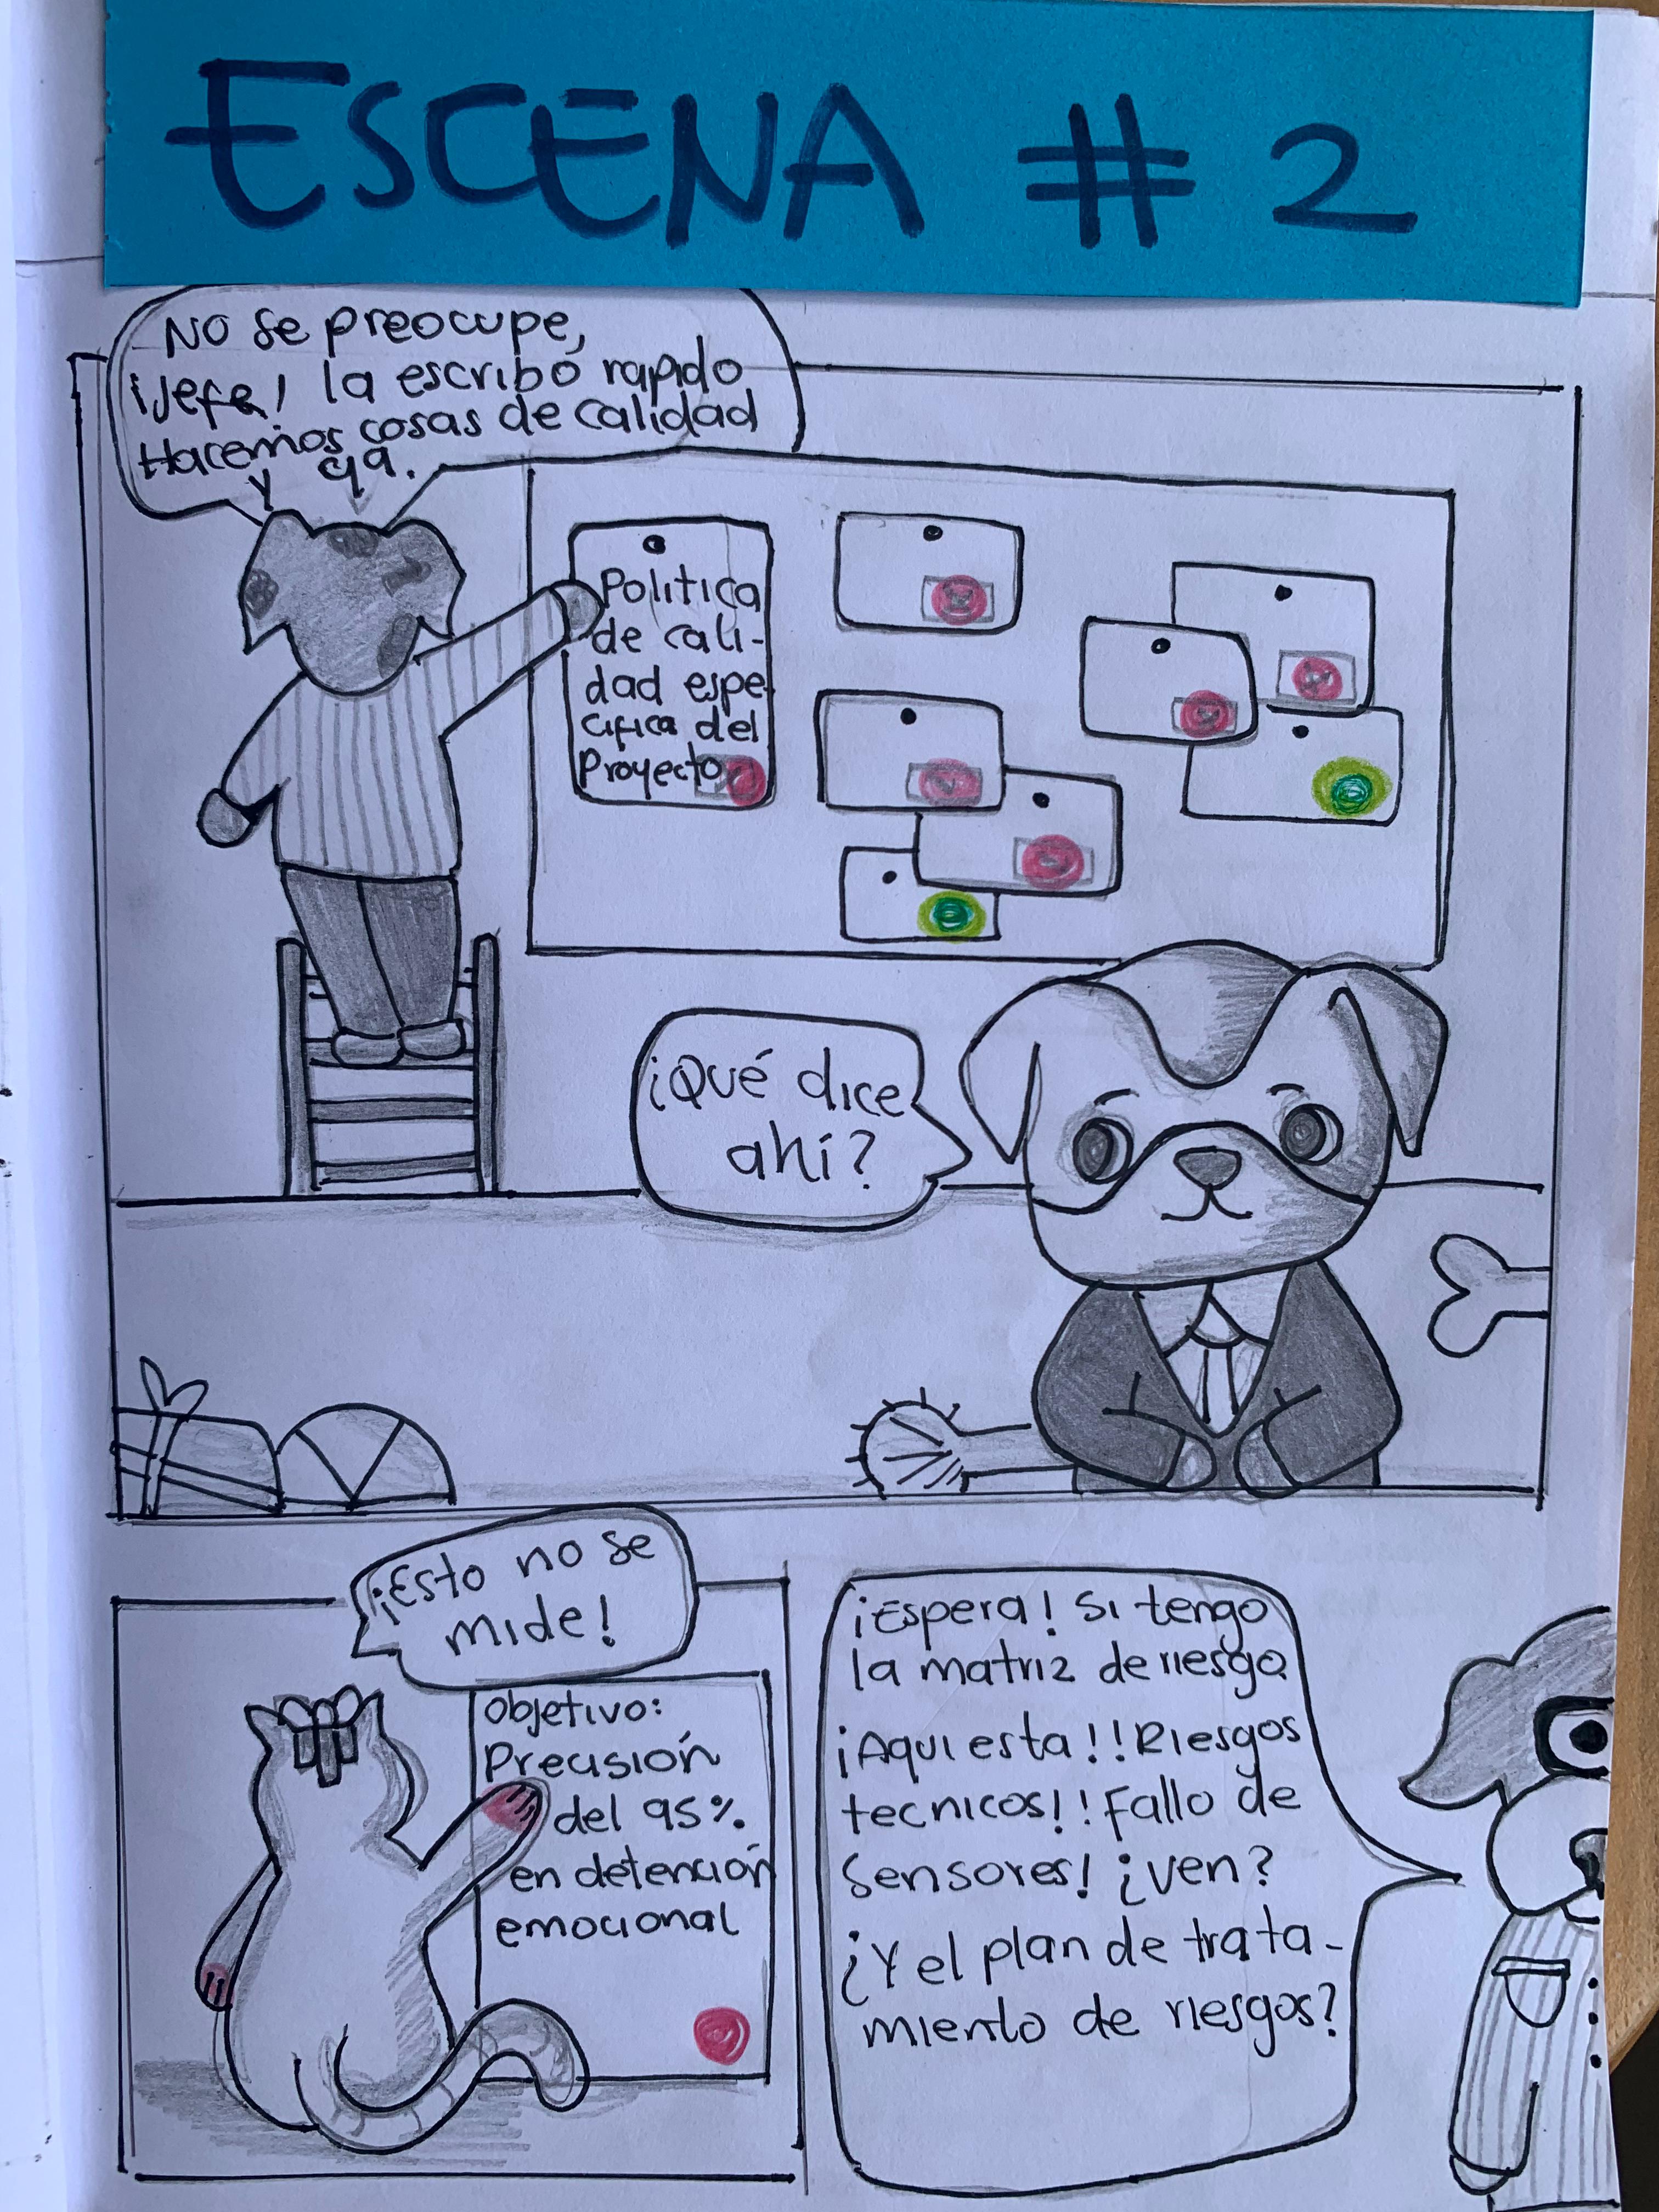 ESCENA # 2
No se preocupe,
¡Jefe! la escribó rapido
Hacemos cosas de calidad
y ya.
Politica
de cali-
dad espe
cifica del
Proyecto
¡Qué dice
ahí?
¡Esto no se
mide!
Objetivo:
Precisión
del 95%
en detención
emocional
¡Espera! Si tengo
la matriz de riesgo
¡Aqui esta!! Riesgos
tecnicos!! Fallo de
Sensores! ¿ven?
¿Y el plan de trata-
miento de riesgos?